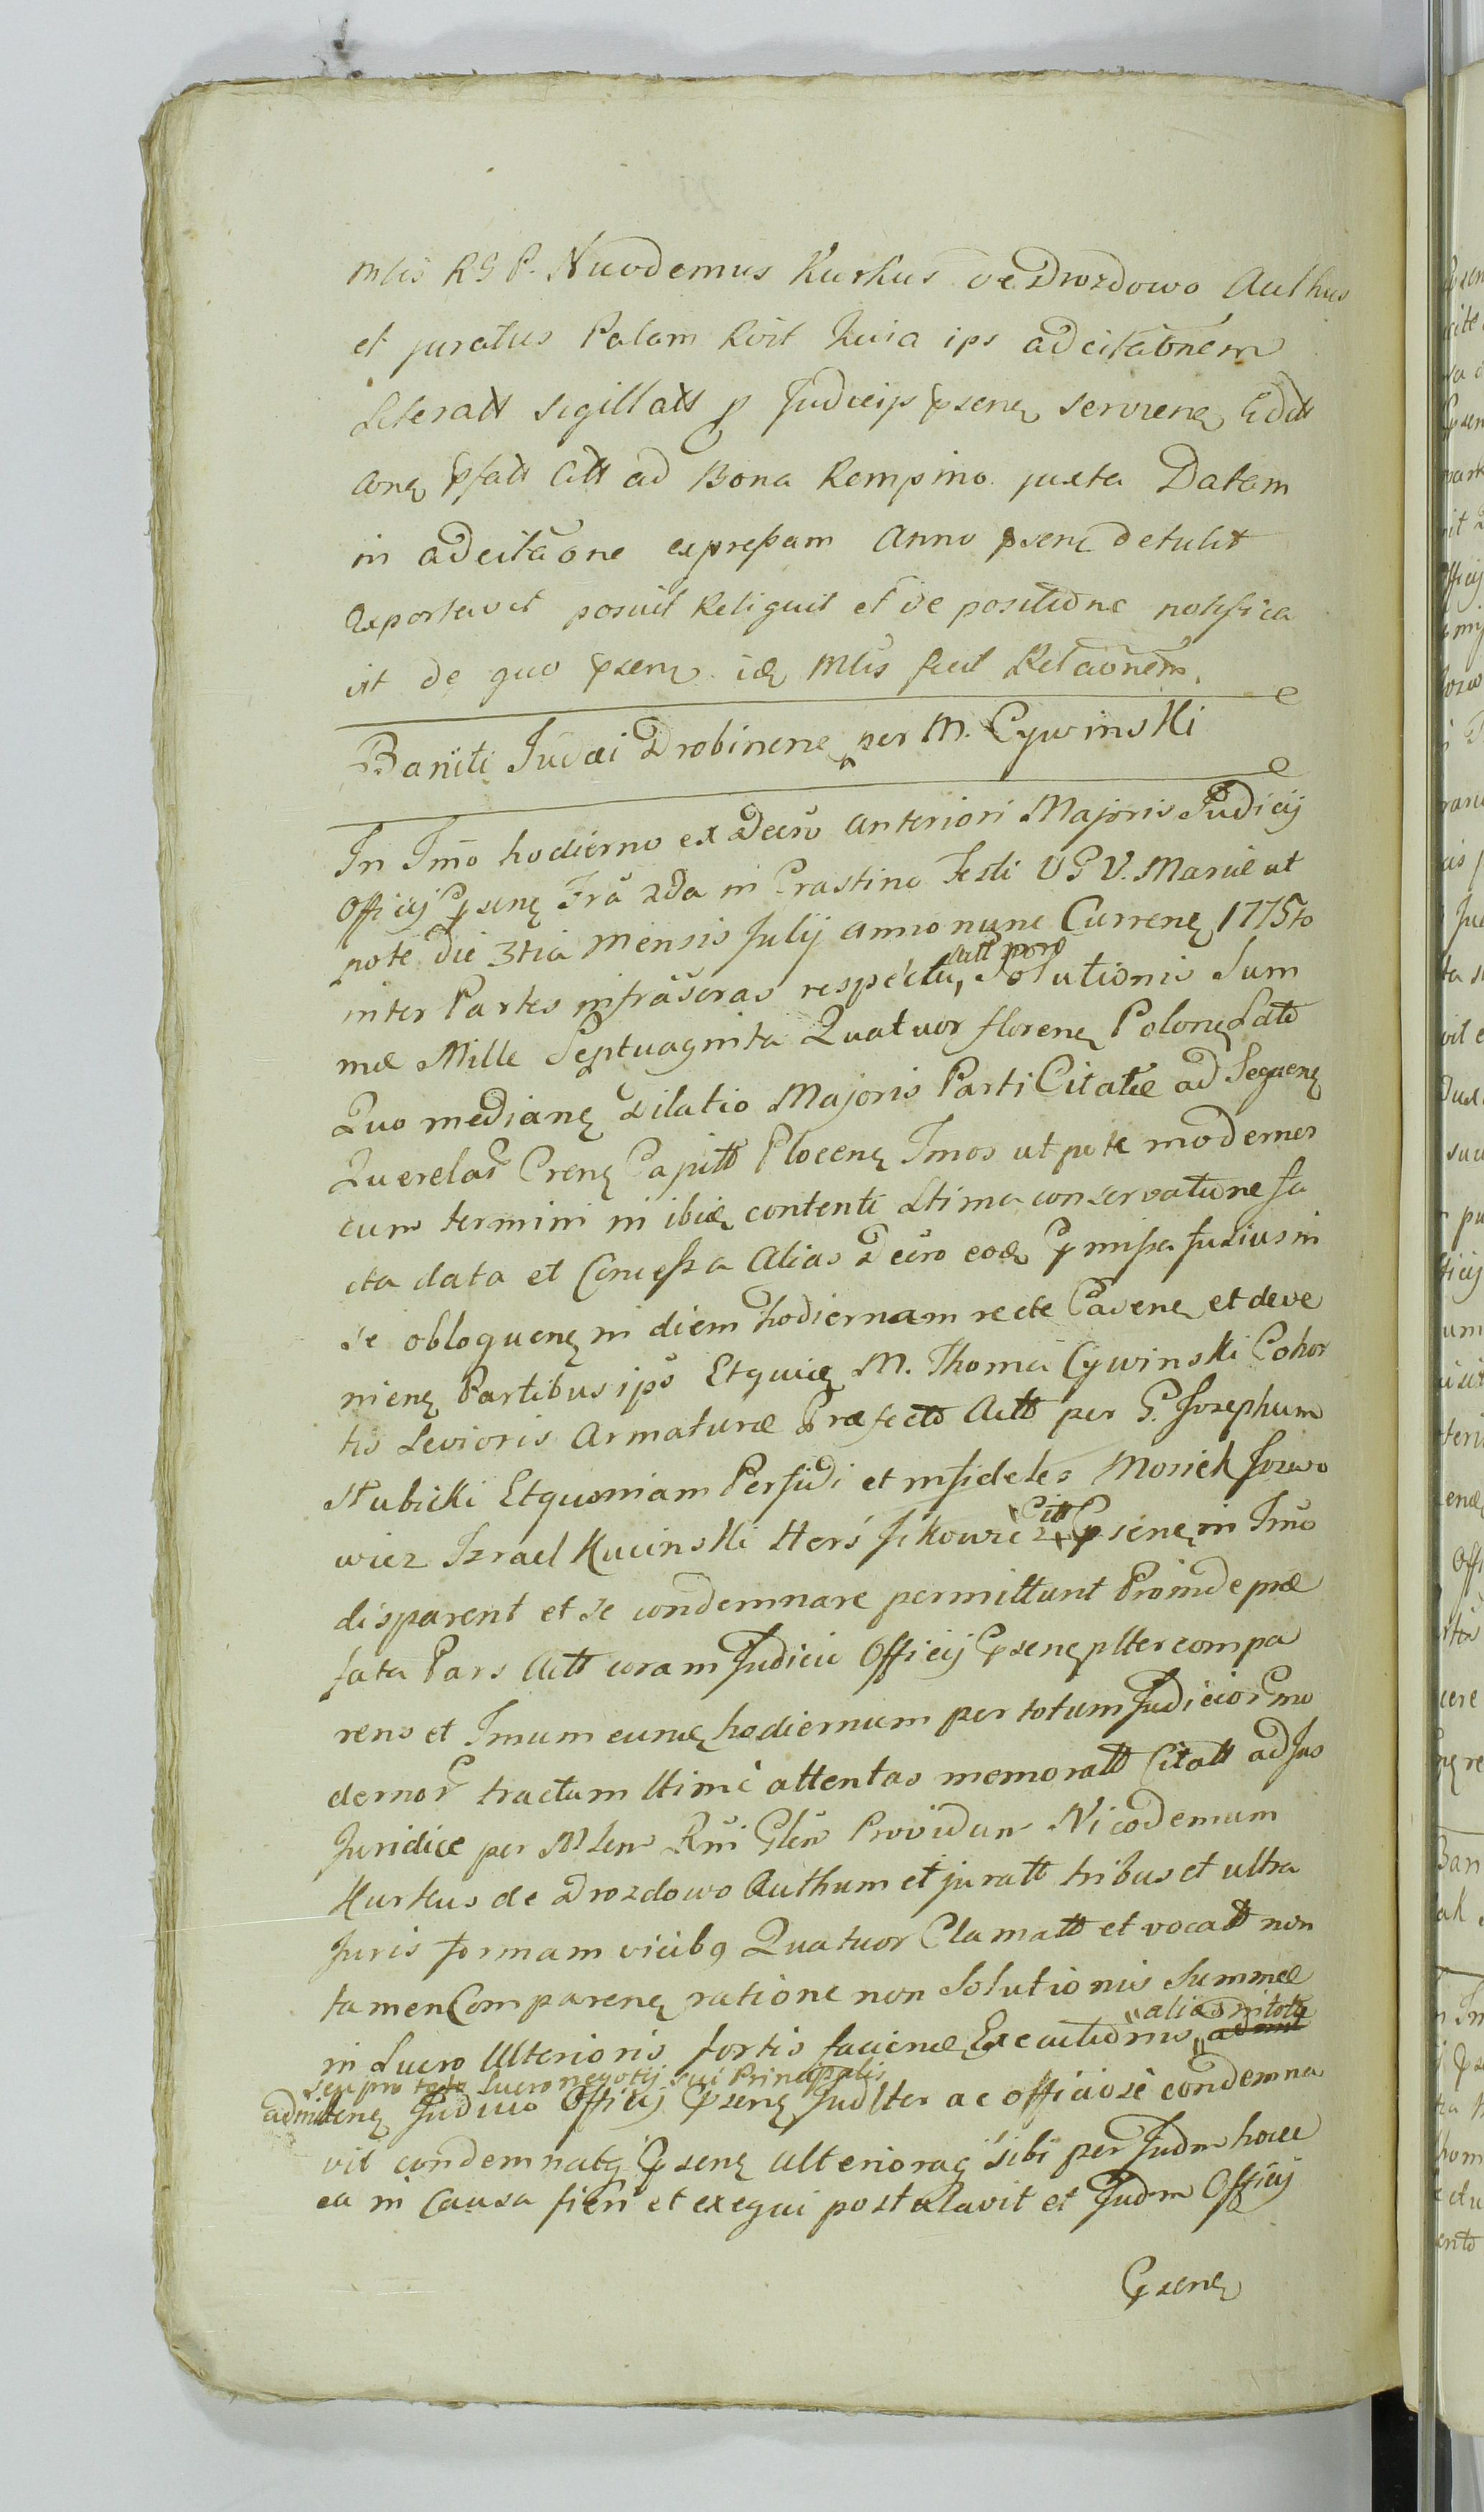 mlis RGP. Nicodemus Kurkus de Drozdowo Authus
et juratus Palam Rvit Quia ips adcitationem
Literatt sigillatt p Judicijs psenę servienę Edit
onę pfatt Citt ad Bona Rempino juxta Datam
in adcitaone expressam Anno psenę detulit
exportavit posuit Reliquit et de positione notifica
vit de quo psenę idę Mlis fecit Relaonem.
Baniti Judæi Drobinenę per M. Cywinski
In Tmo hodierno ex Decro anteriori Majoris Judicij
Officij psenę Fra 2da in Crastino Festi V P V. Mariæ ut
pote die 3tia mensis Julij anno nunc Currenę 1775to
inter Partes infrascras respectu, satt pono Solutionis Sum
mæ Mille Septuaginta Quatuor florenę Polonę Lato
Quo medianę Dilatio Majoris Parti Citatæ ad Sequenę
Querelar Crenę Capitt Plocenę Tmos utpote modernos
cum termini in ibidę contenti Ltima conservatione fa
cta data et Concessa Alias Decro eodę pmissa fusius in
se obloquenę in diem hodiernam recte Cadenę et deve
nienę Partibus ips Etquidę M. Thoma Cywinski Cohor
tis Levioris Armaturæ Præfecto Actt per G. Josephum
Stubicki Etquoniam Perfidi et infideles Mosiek Jozwo
wicz Izrael Kucinski Herś Jckowicz Citt psenę in Tmo
disparent et se condemnare permittunt Proinde præ
fata Pars Actt coram Judicio Officij psenę plter compa
rens et Tmum eundę hodiernum per totum Judicior mo
dernor tractum ltime attentas memoratt Citatt ad Jus
Juridice per Mlem Rni Glem Providum Nicodemum
Kurkus de Drozdowo Authum et juratt tribus et ultra
Juris formam vicibq Quatuor Clamatt et vocatt non
tamen Comparenę ratione non Solutionis Summæ
in Lucro Ulterioris fortis faciendę Executionis, alias in toto
seu pro toto Lucro negotij sui Principalis
admittenę Judicio Officij psenę Judlter ac officiose condemna
vit condemnatq psenę ulterioraq sibi per Judm hocce
ea in Causa fieri et exequi postulavit et Judm Officij
psenę